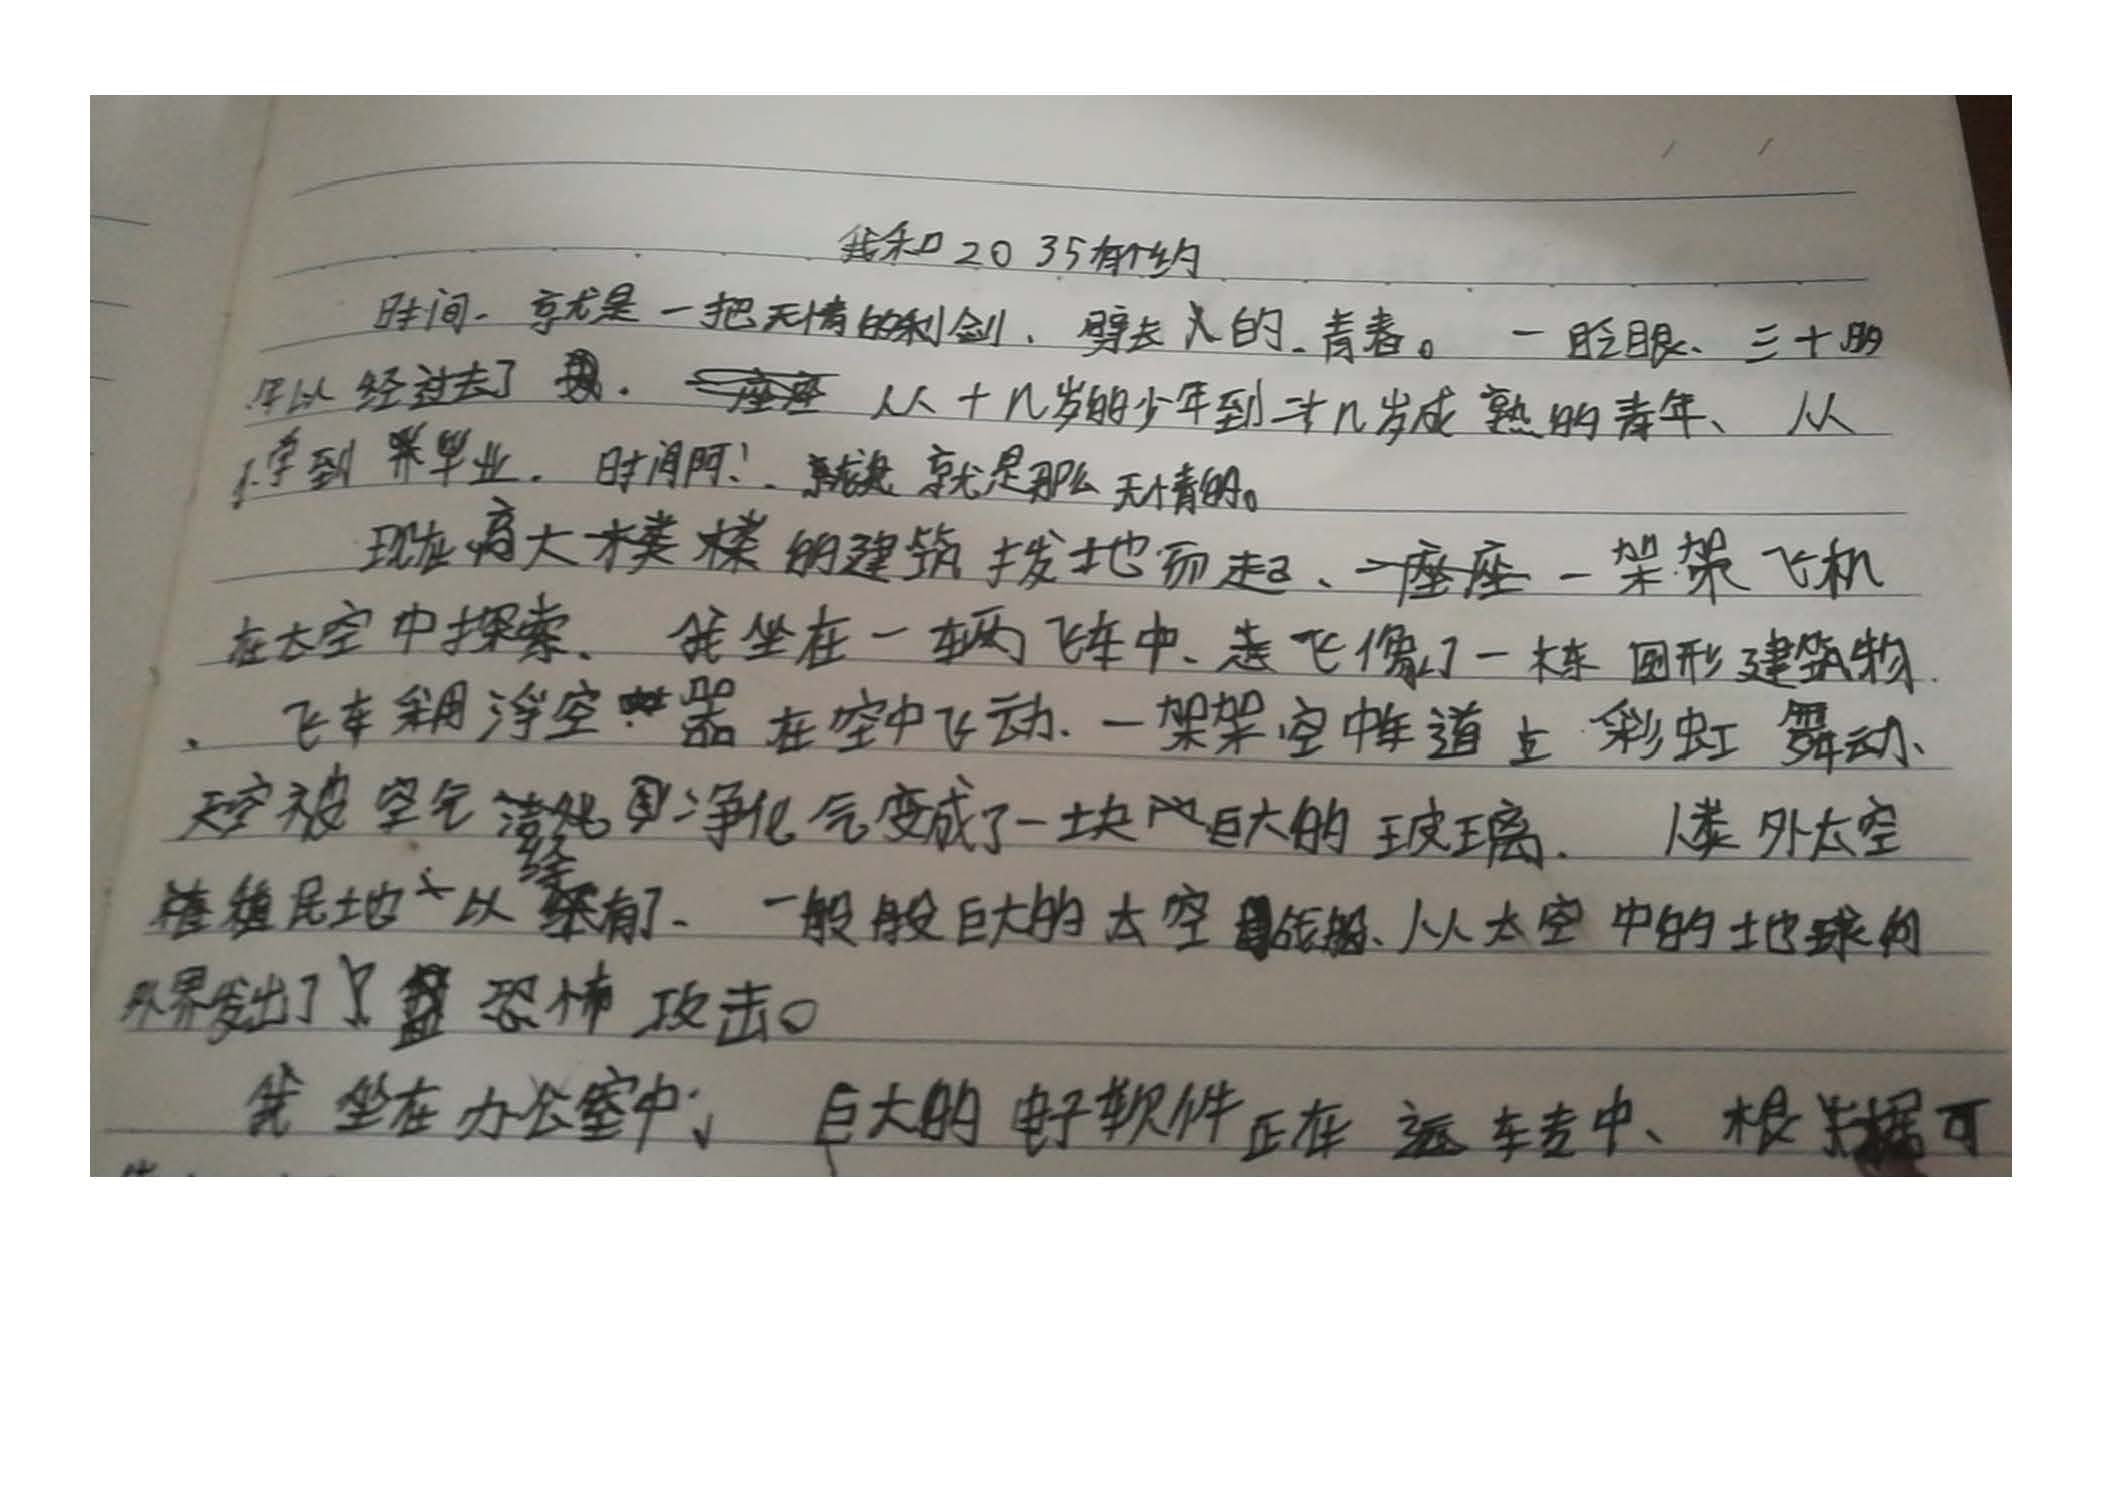 我和2035有个约
时间、就是一把无情的利剑、劈去人的、青春。一眨眼、三十的
年以经过去了. 从人十几岁的少年到二十几岁成熟的青年、从
小学到毕业. 时间阿!、就是那么无情的。
现在高大楼楼的建筑拨地而起、一架架飞机
在太空中探索、我坐在一辆飞车中、飞像了一栋圆形建筑物.
、飞车采用浮空器在空中飞动、一架架空中车道上彩虹舞动、
天空被空气净化气变成了一块巨大的玻璃. 人类外太空
殖民地以经有了、一般般巨大的太空战船、从太空中的地球向
外界发出了恐怖攻击。
我坐在办公室中; 巨大的电子软件正在运转中、根据可